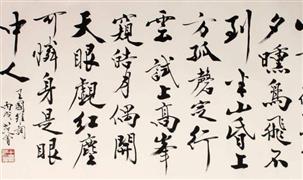 夕曛鳥飛不
到半山昏上
方孤磬定行
雲試上高峯
窺皓月偶開
天眼觀紅塵
可憐身是眼
中人
王國維詞
丙戌